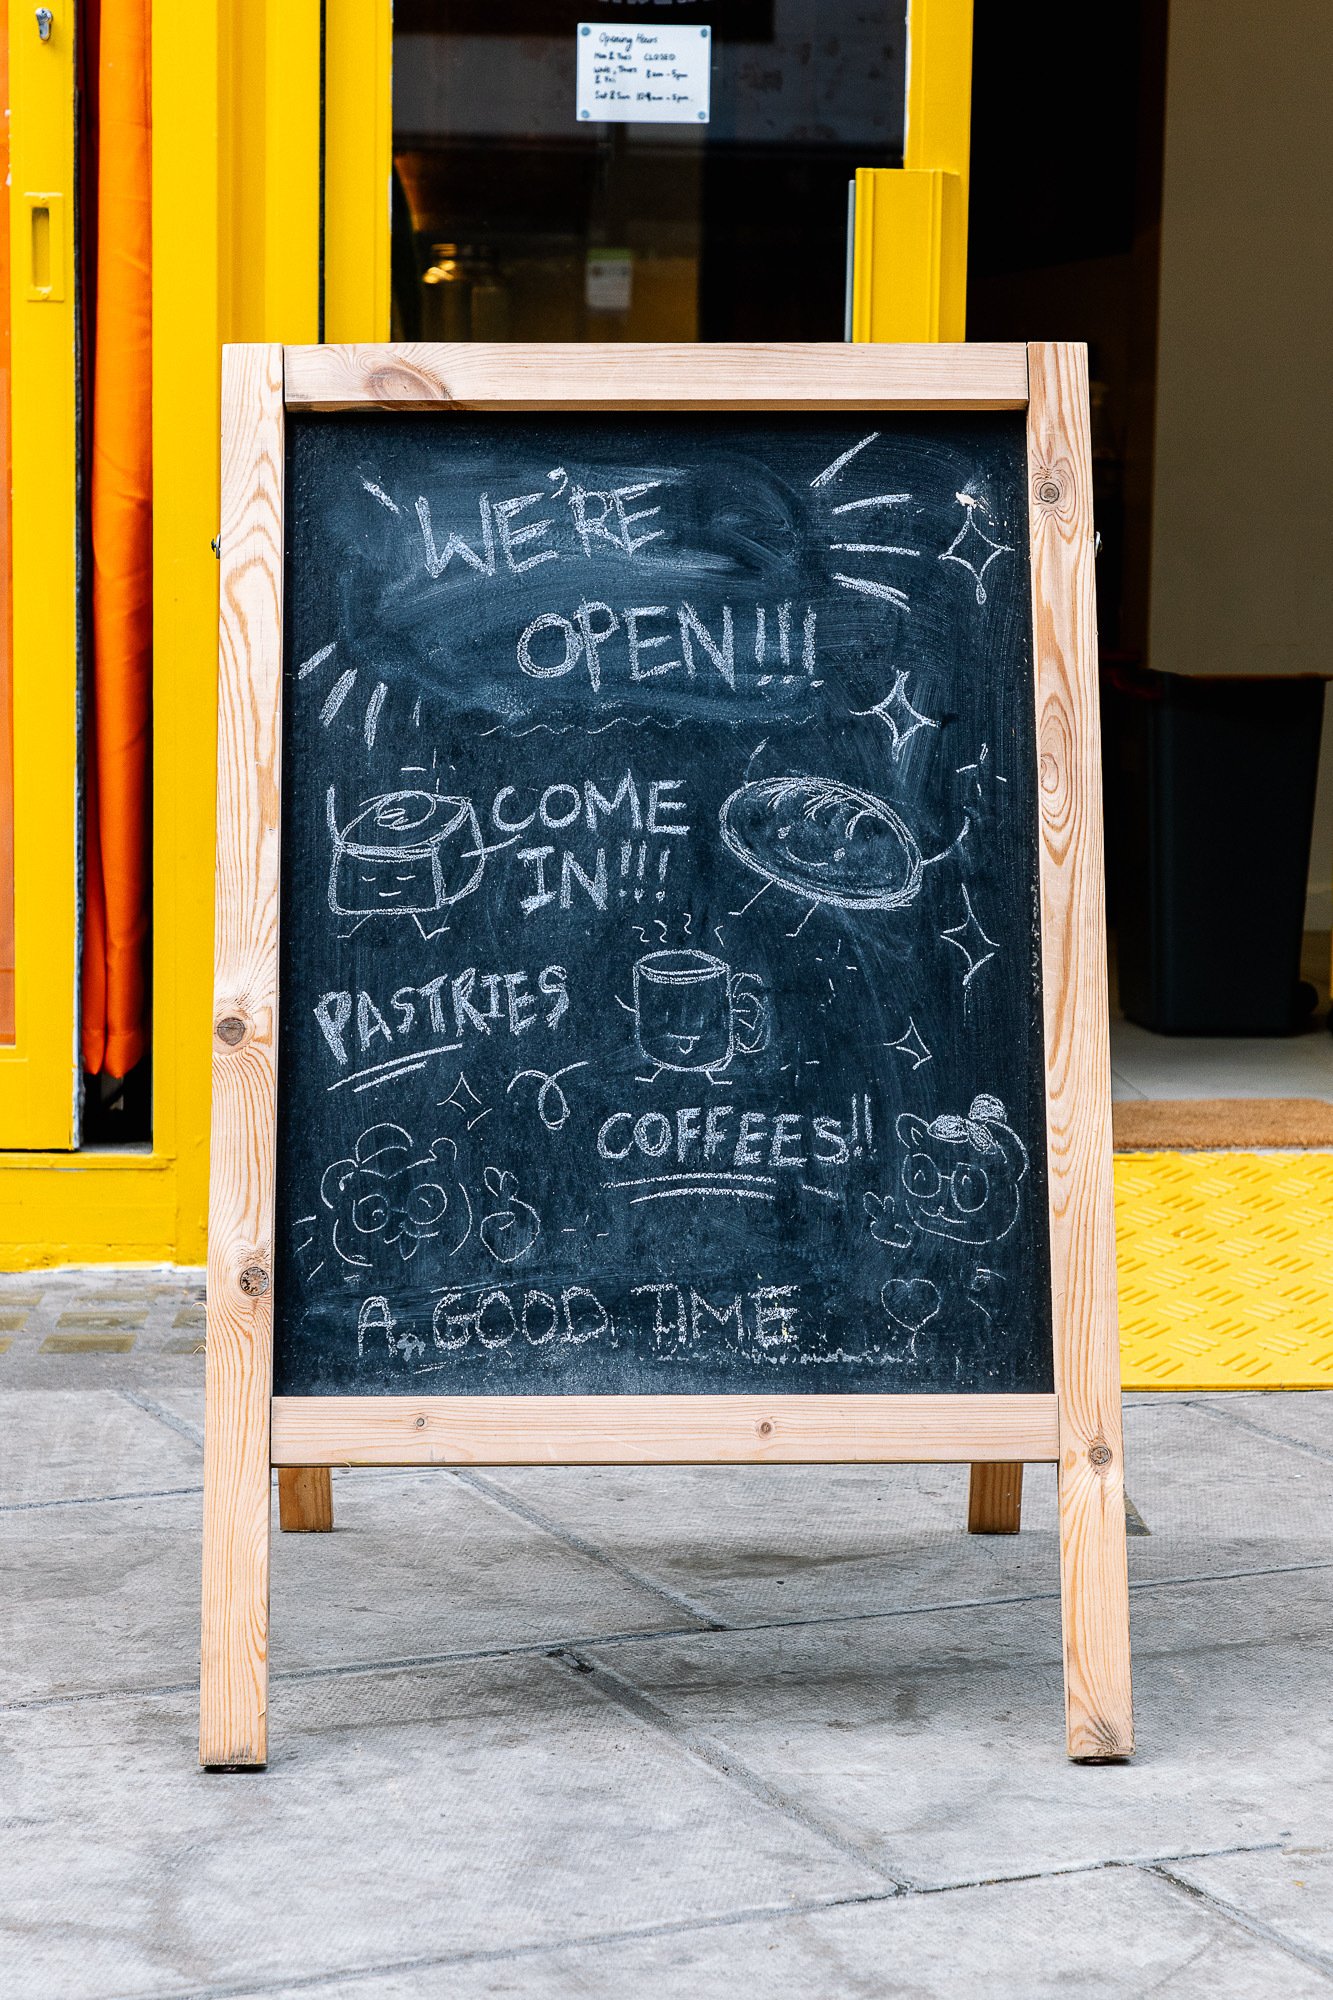 Opening Hours
Mon & Tues CLOSED
Weds, Thurs
& Fri 8am - 5pm
Sat & Sun am - 5pm
WE'RE
OPEN!!!
COME
IN!!!
PASTRIES
COFFEES!!
A GOOD TIME